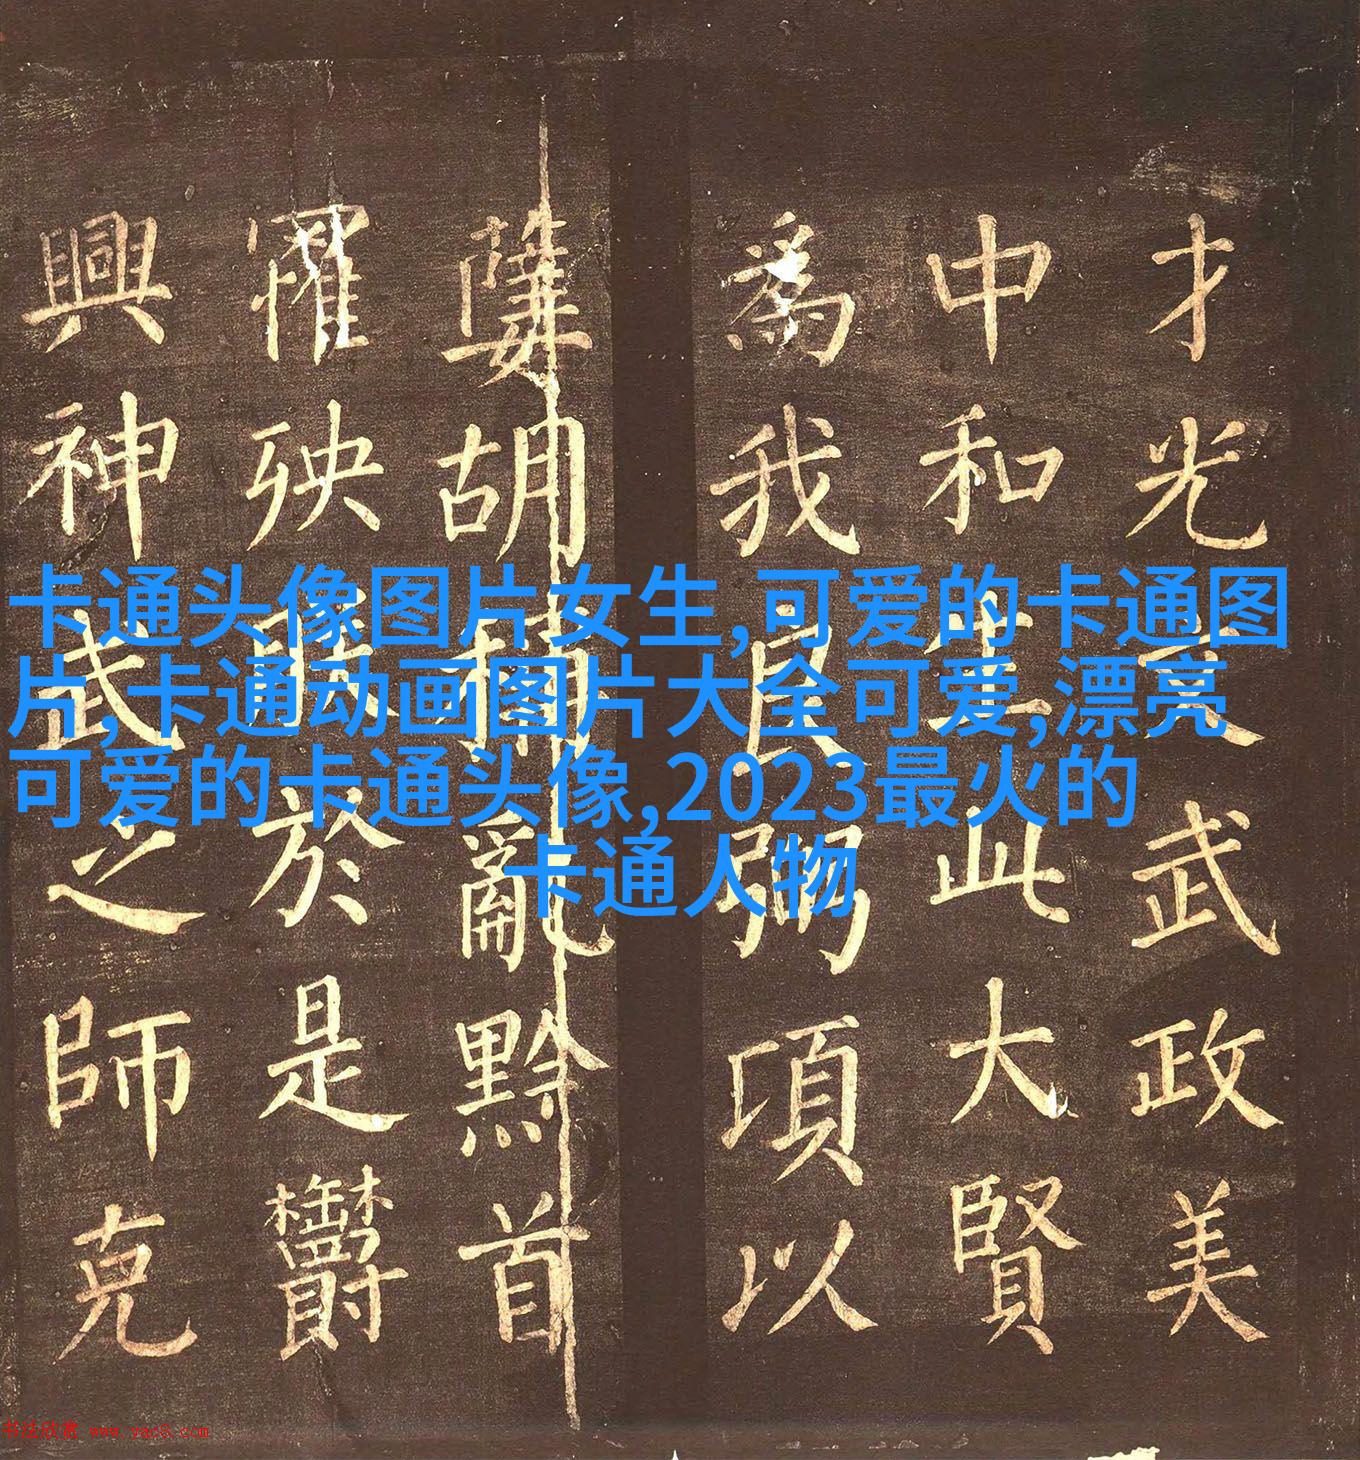 卡通头像图片女生,可爱的卡通图
片,卡通动画图片大全可爱,漂亮
可爱的卡通头像,2023最火的
卡通人物
才光文武政美
中和生此大賢
為我良弼項以
孽胡稱亂黔首
罹殃於是鬱
興神武之師克
书法欣赏 www.yac8.com